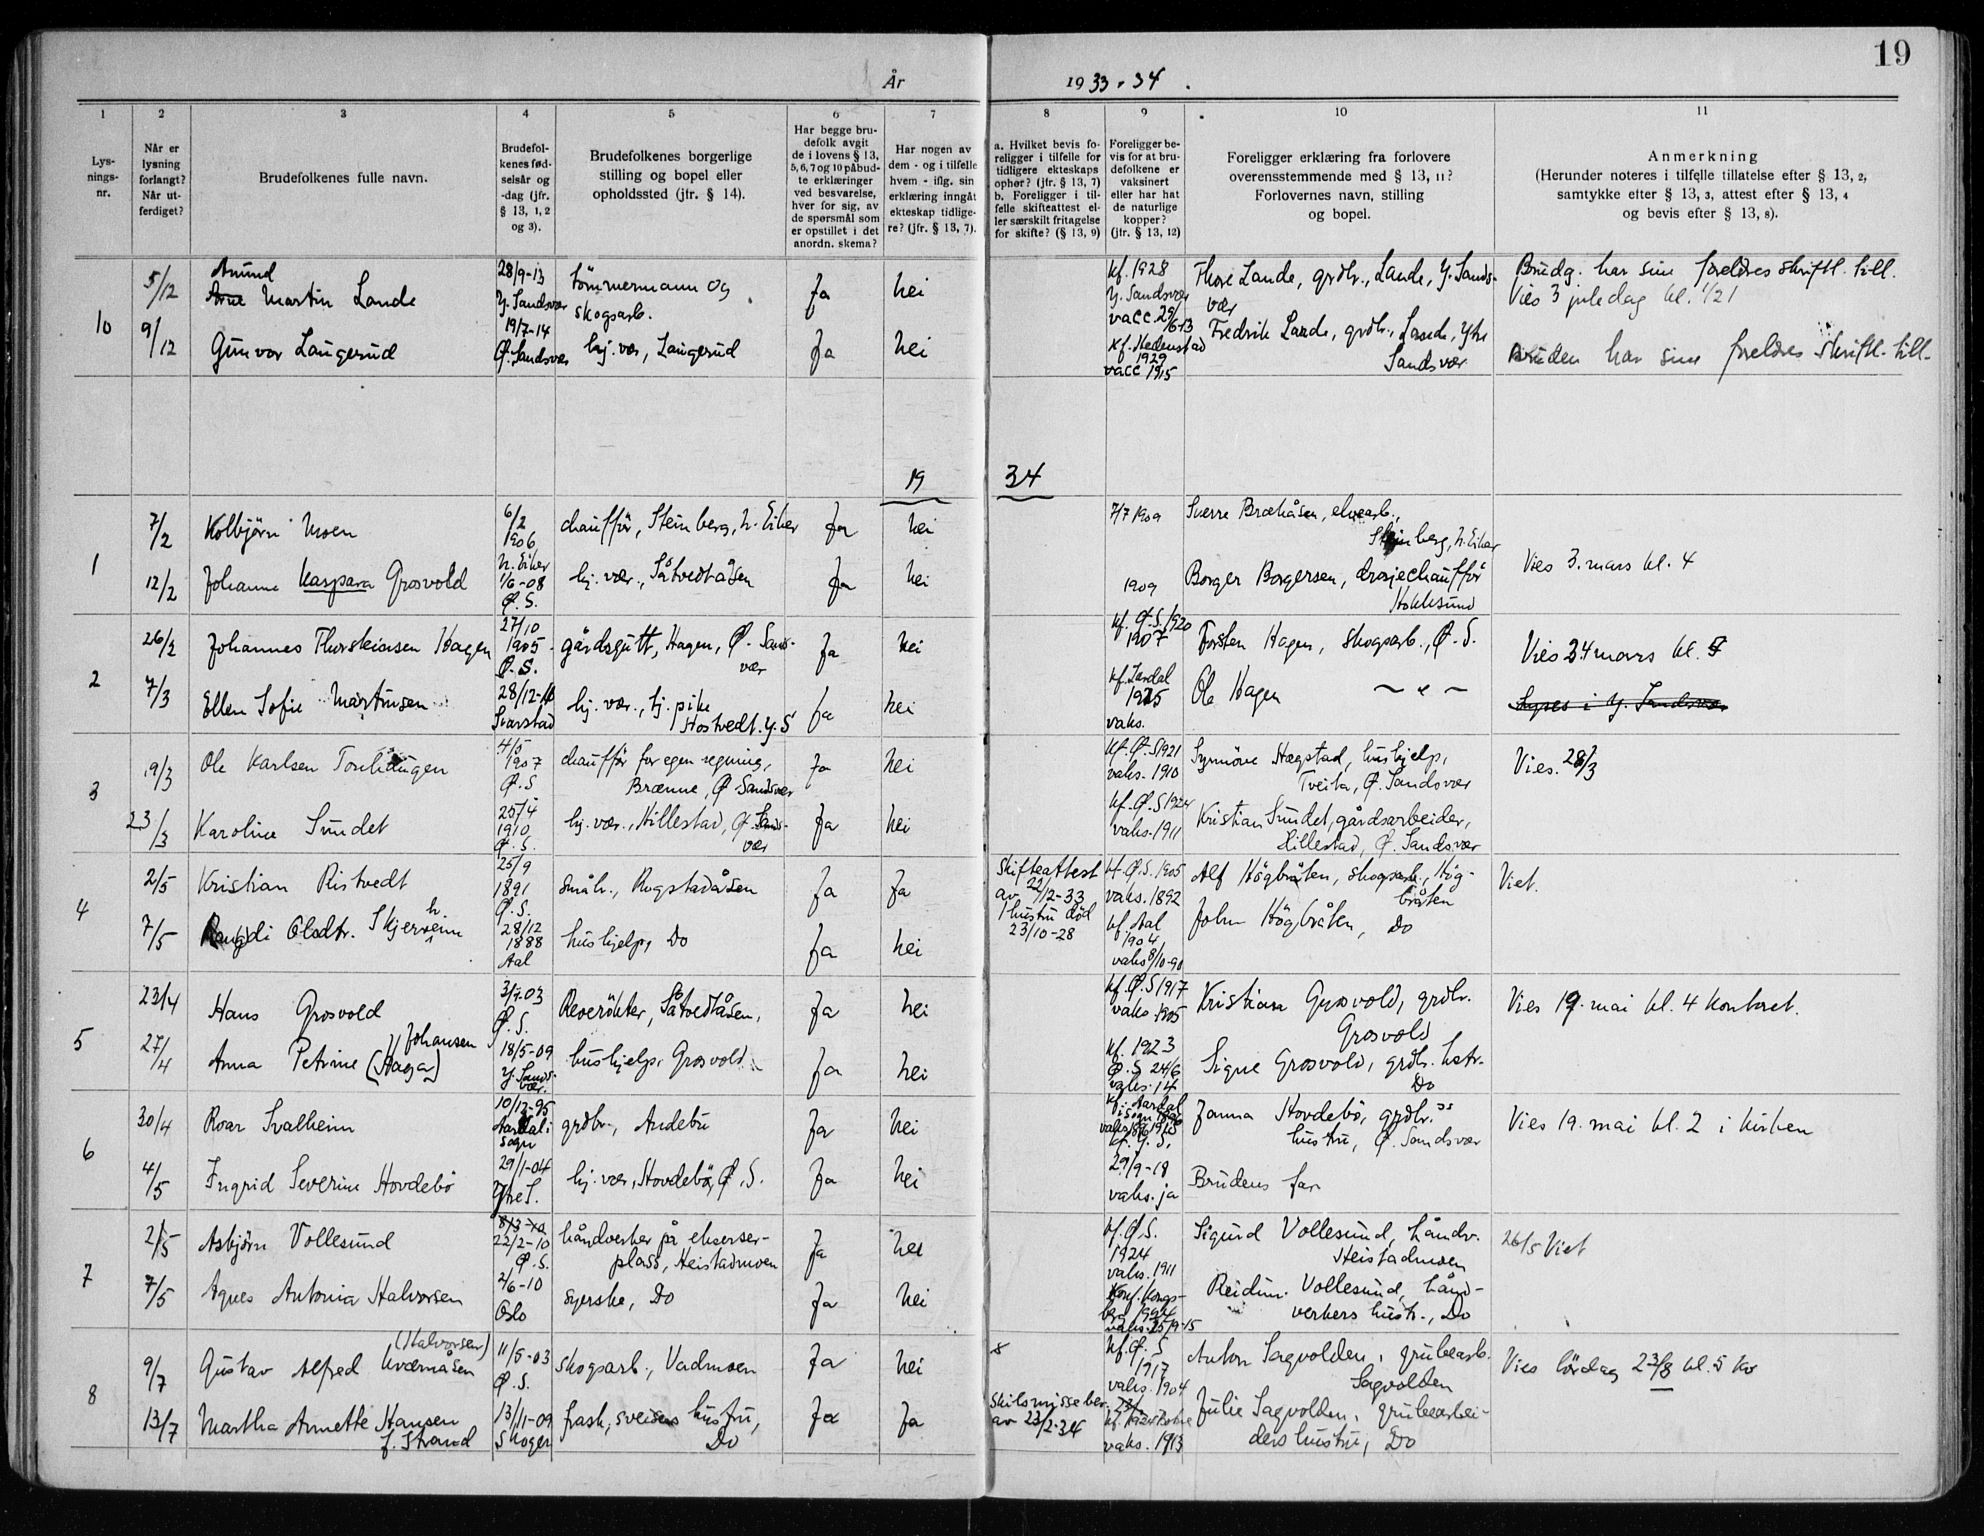 19
År 1933-34.
1 2 3 4 5 6 7 8 9 10 11
Lys-
nings-
nr.
Når er
lysning
forlangt?
Når ut-
ferdiget?
Brudefolkenes fulle navn.
Brudefol-
kenes fød-
selsår og
-dag (jfr.
§ 13, 1, 2
og 3).
Brudefolkenes borgerlige
stilling og bopel eller
opholdssted (jfr. § 14).
Har begge bru-
defolk avgit
de i lovens § 13,
5, 6, 7 og 10 påbud-
te erklæringer
ved besvarelse,
hver for sig, av
de spørsmål som
er opstillet i det
anordn. skema?
Har nogen av
dem - og i tilfelle
hvem - iflg. sin
erklæring inngått
ekteskap tidlige-
re? (jfr. § 13, 7).
a. Hvilket bevis fo-
religger i tilfelle for
tidligere ekteskaps
ophør? (jfr. § 13, 7)
b. Foreligger i til-
felle skifteattest el-
ler særskilt fritagelse
for skifte? (§ 13, 9)
Foreligger be-
vis for at bru-
defolkene er
vaksinert
eller har hat
de naturlige
kopper?
(jfr. § 13, 12)
Foreligger erklæring fra forlovere
overensstemmende med § 13, 11?
Forlovernes navn, stilling
og bopel.
Anmerkning
(Herunder noteres i tilfelle tillatelse efter § 13, 2,
samtykke efter § 13, 3, attest efter § 13, 4
og bevis efter § 13, 8).
10
5/12
Amund
Arne Martin Lande
28/9-13
Y. Sandsvær
tömmermann og
skogsarb.
Ja
nei
kf. 1928
Y. Sandsvær
vacc. 29/6-13
Thore Lande, grdbr., Lande, Y. Sands-
vær
Brudg. har sine foreldres skriftl. till.
Vies 3 juledag kl. 1/21
9/12
Gunvor Laugerud
19/7-14
Ø. Sandsvær
hj. vær, Laugerud
Ja
nei
kf. Hedenstad
1929
vacc 1915
Fredrik Lande, grdbr., Lande, Ytre
Sandsvær
Bruden har sine foreldres skriftl. till.
19 34
1
7/2
Kolbjörn Moen
6/2
1906
N. Eiker
chaufför, Steinberg, N. Eiker
Ja
nei
7/7 1909
Sverre Bræhåsen, elvearb.,
Steinberg, N. Eiker
Vies 3. mars kl. 4
12/2
Johanne Kaspara Grosvold
1/6-08
Ø. S.
hj. vær., Såtvedtåsen
Ja
nei
1909
Borger Borgersen, drosjechauffør
Hokksund
2
26/2
Johannes Thorsteinsen Hagen
27/10
1905
Ø. S.
gårdsgutt, Hagen, Ø. Sands-
vær
Ja
nei
kf. Ø. S. 1920
1907
Torsten Hagen, skogsarb., Ø. S.
Vies 24 mars kl. 5
7/3
Ellen Sofie Martinsen
28/12-10
Svarstad
hj. vær., tj. pike
Hostvedt. Y. S
Ja
nei
kf. Lardal
1925
vaks.
Ole Hagen — " —
Lyses i Y. Sandsvær
3
19/3
Ole Karlsen
4/5
1907
Ø. S
chauffør for egen regning,
Brænne, Ø Sandsvær
Ja
nei
kf. Ø. S 1921
vaks. 1910
Synnöve Hægstad, hushjelp,
Tveita, Ø. Sandsvær
Vies. 28/3
23/3
Karoline Sundet
25/4
1910
Ø. S.
hj. vær., Hillestad, Ø. Sands-
vær
Ja
nei
kf. Ø. S 1924
vaks. 1911
Kristian Sundet, gårdsarbeider,
Hillestad, Ø. Sandsvær
4
2/5
Kristian Ristvedt
25/9
1891
Ø. S.
småbr., Rugstadåsen
Ja
Ja
Skifteattest
av 22/12-33
1 hustru död
23/10-28
kf. Ø. S. 1905
vaks. 1892
Alf Högbråten, skogsarb., Hög-
bråten
Viet.
7/5
Olsdtr. Skjerveheim
28/12
1888
Aal
hushjelp, Do
Ja
nei
kf. Aal
1904
vaks 8/10-90
John Högbråten, Do
5
23/4
Hans Grosvold
3/7-03
Ø. S.
Reverökter, Såtvedtåsen,
Ja
nei
kf. Ø. S 1917
vaks. 1905
Kristian Grosvold, grdbr.
Grosvold
Vies 19. mai kl. 4 kontoret.
27/4
Anna Petrine (Haga) Johansen
18/5-09
Y. Sands-
vær.
hushjelp, Grosvold
Ja
nei
kf. 1923
Ø. S 24/6
vaks. 14
Signe Grosvold, grdbr. hstr.
Do
6
30/4
Roar Svalheim
10/12-95
Aardal i
Sogn
grdbr., Andebu
Ja
nei
kf. Aardal
i Sogn
Janna Hovdebö, grdbr.s
hustru, Ø. Sandsvær
Vies 19. mai kl. 2 i kirken
4/5
Ingrid Severine Hovdebö
29/1-04
Ytre S.
hj. vær, Hovdebö, Ø. S.
Ja
nei
kf. Ø. S.
29/9-18
vaks. ja
Brudens far
7
2/5
Asbjörn Vollesund
8/3-10
22/2-10
Ø. S.
håndverker på ekserser-
plass, Heistadmoen
Ja
nei
kf. Ø. S.
1924
vaks. 1911
Sigurd Vollesund, håndv.
Heistadmoen
26/5 Viet
7/5
Agnes Antonia Halvorsen
2/6-10
Oslo
syerske, Do
Ja
nei
Konf. Kongs-
berg 1924
vaks. 25/9-15
Reidun Vollesund, hånd-
verkers hustr., Do
8
9/7
Gustav Alfred Kværnåsen (Halvorsen)
11/5-03
Ø. S.
skogsarb., Vadmoen
Ja
nei
kf. Ø. S
1917
vaks. 1904
Anton Sagvolden, grubearb.
Sagvolden
Vies lördag 23/8 kl. 5 ko
13/7
Martha Annette Hansen
f. Strand
13/11-09
Skoger
frask. sveisers hustru,
Do
Ja
Ja
Skilsmisse bev.
av 23/2-34
vaks. 1913
Julie Sagvolden, grubearbei-
ders hustru, Do